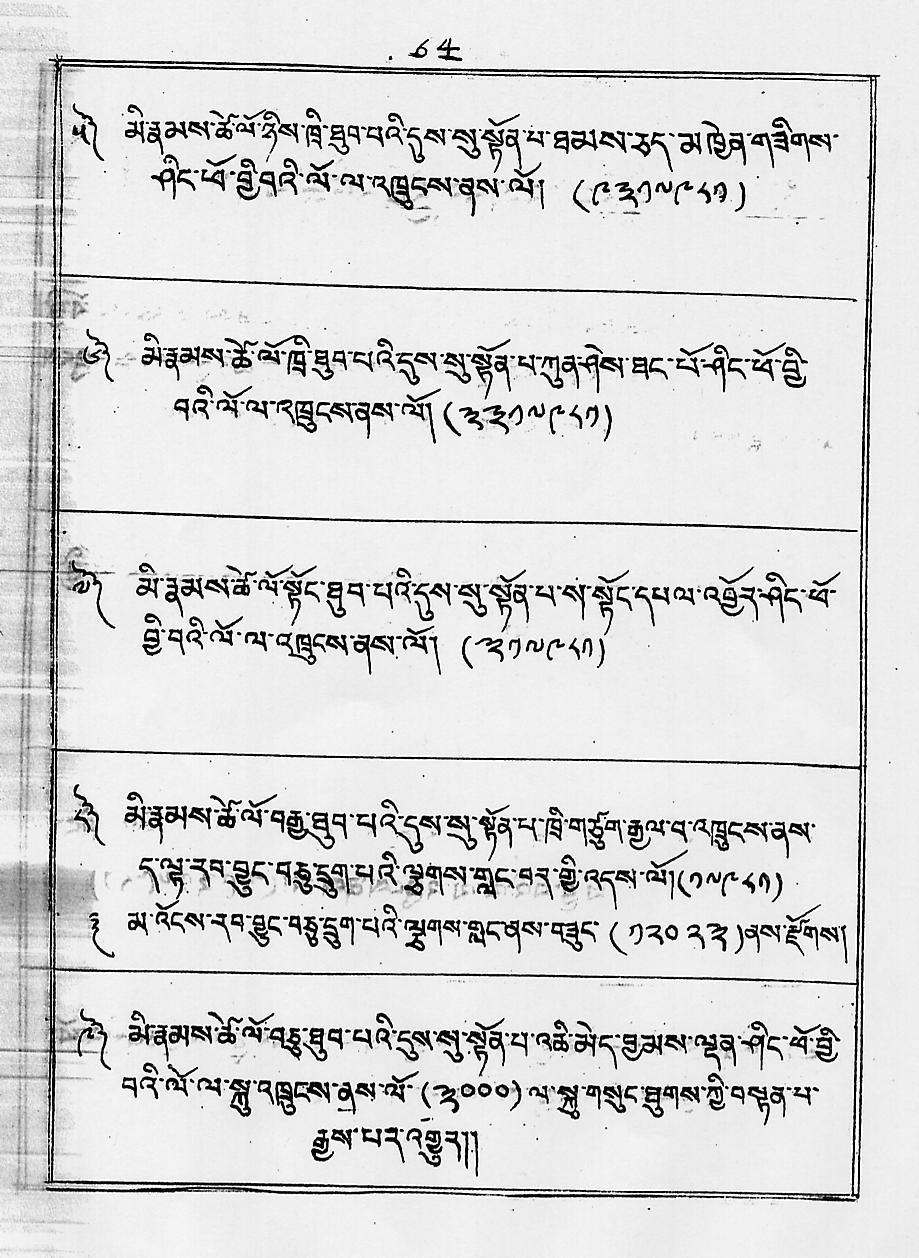 64
༥༽ མི་རྣམས་ཚེ་ལོ་ཉིས་ཁྲི་ཐུབ་པའི་དུས་སུ་སྟོན་པ་ཐམས་ཅད་མཁྱེན་གཟིགས་
ཤིང་ཕོ་བྱི་བའི་ལོ་ལ་འཁྲུངས་ནས་ལོ། (༩༣༡༧༩༨༡)
༦༽ མི་རྣམས་ཚེ་ལོ་ཁྲི་ཐུབ་པའི་དུས་སུ་སྟོན་པ་ཀུན་ཤེས་ཐང་པོ་ཤིང་ཕོ་བྱི་
བའི་ལོ་ལ་འཁྲུངས་ནས་ལོ། (༣༣༡༧༩༨༡)
༧༽ མི་རྣམས་ཚེ་ལོ་སྟོང་ཐུབ་པའི་དུས་སུ་སྟོན་པ་ས་སྟོང་དཔལ་འབྱོར་ཤིང་ཕོ་
བྱི་བའི་ལོ་ལ་འཁྲུངས་ནས་ལོ། (༣༡༧༩༨༡)
༨༽ མི་རྣམས་ཚེ་ལོ་བརྒྱ་ཐུབ་པའི་དུས་སུ་སྟོན་པ་ཁྲི་གཙུག་རྒྱལ་བ་འཁྲུངས་ནས་
ད་ལྟ་རབ་བྱུང་བཅུ་དྲུག་པའི་ལྕགས་གླང་བར་གྱི་འདས་ལོ།(༡༧༩༨༡)
༣ མ་འོངས་རབ་བྱུང་བཅུ་དྲུག་པའི་ལྕགས་གླང་ནས་བཟུང་ (༡༢༠༢༣)ནས་རྫོགས།
༩༽ མི་རྣམས་ཚེ་ལོ་བཅུ་ཐུབ་པའི་དུས་སུ་སྟོན་པ་འཆི་མེད་བྱམས་ལྡན་ཤིང་ཕོ་བྱི་
བའི་ལོ་ལ་སྐུ་འཁྲུངས་ནས་ལོ་ (༣༠༠༠) ལ་སྐུ་གསུང་ཐུགས་ཀྱི་བསྟན་པ་
རྒྱས་པར་འགྱུར།།